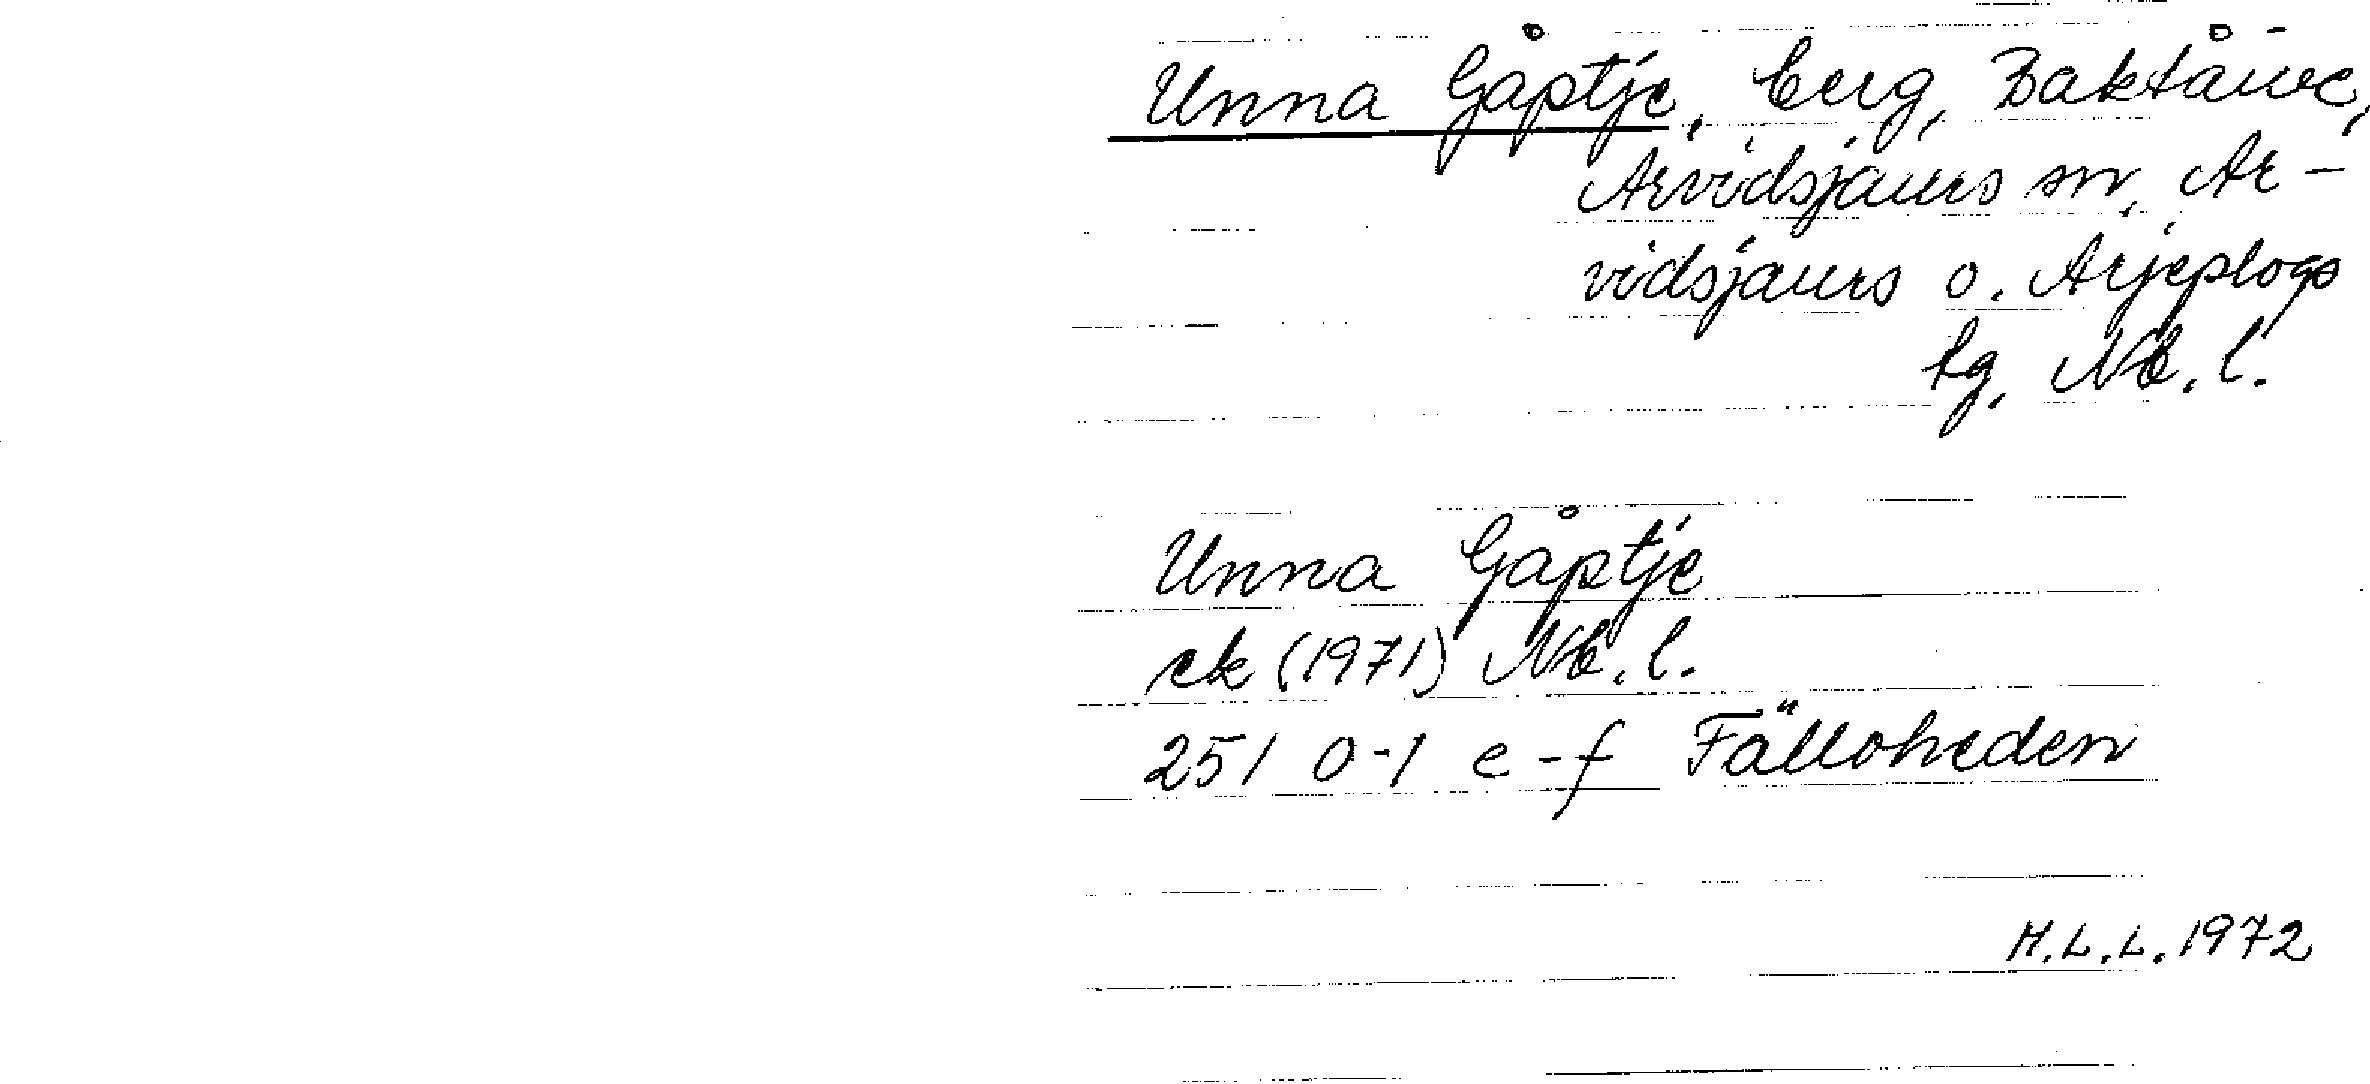 Unna Gåptje, berg, Baktåive,
Arvidsjaurs sn, Ar-
vidsjaurs o. Arjeplogs
tg, Nb. l.
Unna Gåptje
ek (1971) Nb. l.
251 0-1 e-f Fälloheden
H.L.L. 1972